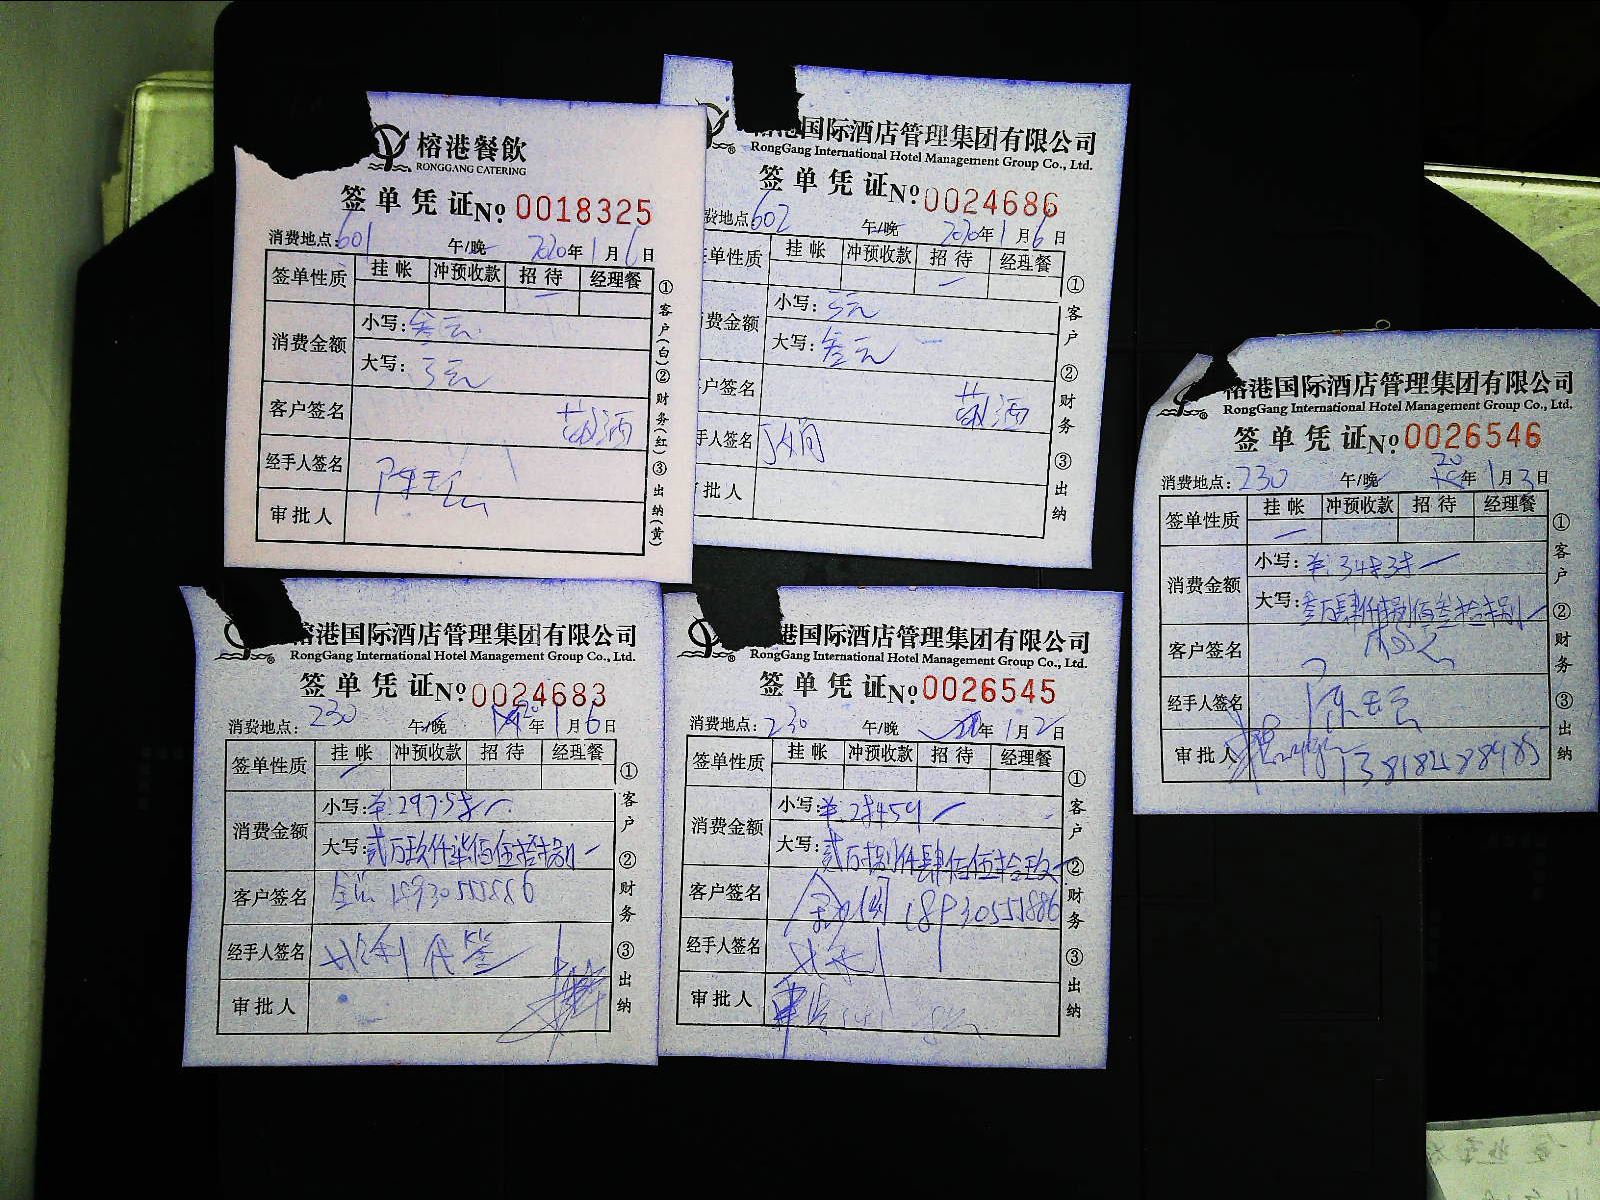 榕港餐飲
RONGGANG CATERING
签单凭证 No 0018325
消费地点:601 午/晚 2020年1月6日
签单性质 挂帐 冲预收款 招待 经理餐
消费金额 小写:叁元
大写:3元
客户签名
经手人签名
审批人
①客户(白)②财务(红)③出纳(黄)
港国际酒店管理集团有限公司
RongGang International Hotel Management Group Co., Ltd.
签单凭证 No 0024686
费地点602 午/晚 2020年1月6日
单性质 挂帐 冲预收款 招待 经理餐
费金额 小写:3元
大写:叁元
户签名
手人签名
批人
①客户 ②财务 ③出纳
榕港国际酒店管理集团有限公司
RongGang International Hotel Management Group Co., Ltd.
签单凭证 No 0026546
消费地点:230 午/晚 20年1月3日
签单性质 挂帐 冲预收款 招待 经理餐
消费金额 小写:
大写:
客户签名
经手人签名
审批人
①客户 ②财务 ③出纳
榕港国际酒店管理集团有限公司
RongGang International Hotel Management Group Co., Ltd.
签单凭证 No 0024683
消费地点:230 午/晚 20年1月6日
签单性质 挂帐 冲预收款 招待 经理餐
消费金额 小写:
大写:贰万玖仟柒佰伍拾捌
客户签名 18930555886
经手人签名 代签
审批人
①客户 ②财务 ③出纳
港国际酒店管理集团有限公司
RongGang International Hotel Management Group Co., Ltd.
签单凭证 No 0026545
消费地点:230 午/晚 年1月2日
签单性质 挂帐 冲预收款 招待 经理餐
消费金额 小写:
大写:贰万捌仟肆佰伍拾玖
客户签名
经手人签名
审批人
①客户 ②财务 ③出纳